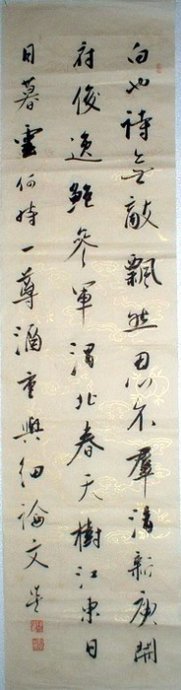 白也詩無敵飄然思不羣清新庾開
府俊逸鮑參軍渭北春天樹江東日
日暮雲何時一尊酒重與細論文